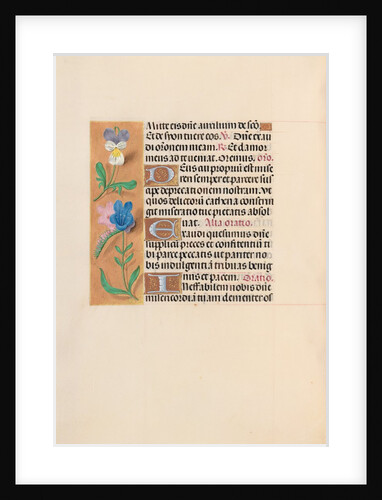 Mitte eis dñe auxilium de scõ.
Et de syon tuere eos. V. Dñe exau
di orõnem meam. R. Et clamor
meus ad te veniat. Oremus. Orõ.
Deus cui propriũ est mise
reri semper et parcere sus
cipe deprecationem nostram. ut
quos delictorũ cathena constrin
git miseratio tue pietatis absol
uat. Alia oratio.
Exaudi quesumus dñe
supplicũ preces et confitentiũ ti
bi parce peccatis ut pariter no
bis indulgentiã tribuas benig
nus et pacem. Oratio.
Ineffabilem nobis dñe
misericordiã tuam clementer os